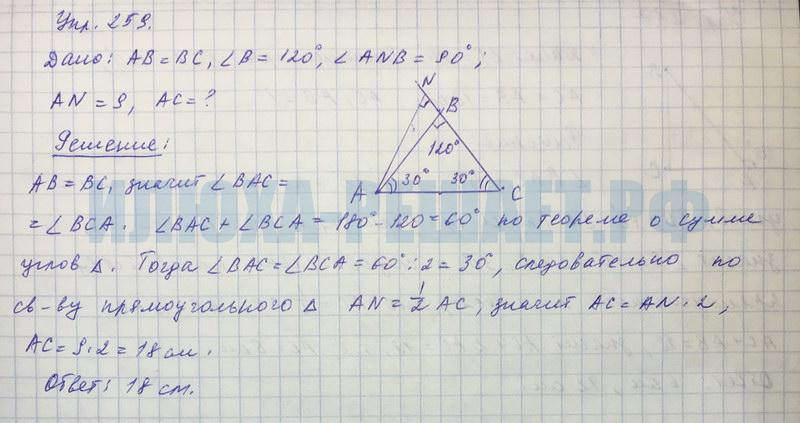 Упр. 259.
Дано: AB=BC, ∠B = 120°, ∠ ANB = 90°;
AN = 9, AC = ?
Решение:
N
B
120°
A 30° 30° C
AB = BC, значит ∠BAC =
= ∠BCA. ∠BAC + ∠BCA = 180° - 120 = 60° по теореме о сумме
ИЛЮХА-РЕШАЕТ.РФ
углов Δ. Тогда ∠BAC = ∠BCA = 60° : 2 = 30°, следовательно по
св-ву прямоугольного Δ AN = 1/2 AC, значит AC = AN · 2,
AC = 9 · 2 = 18 см.
Ответ: 18 см.